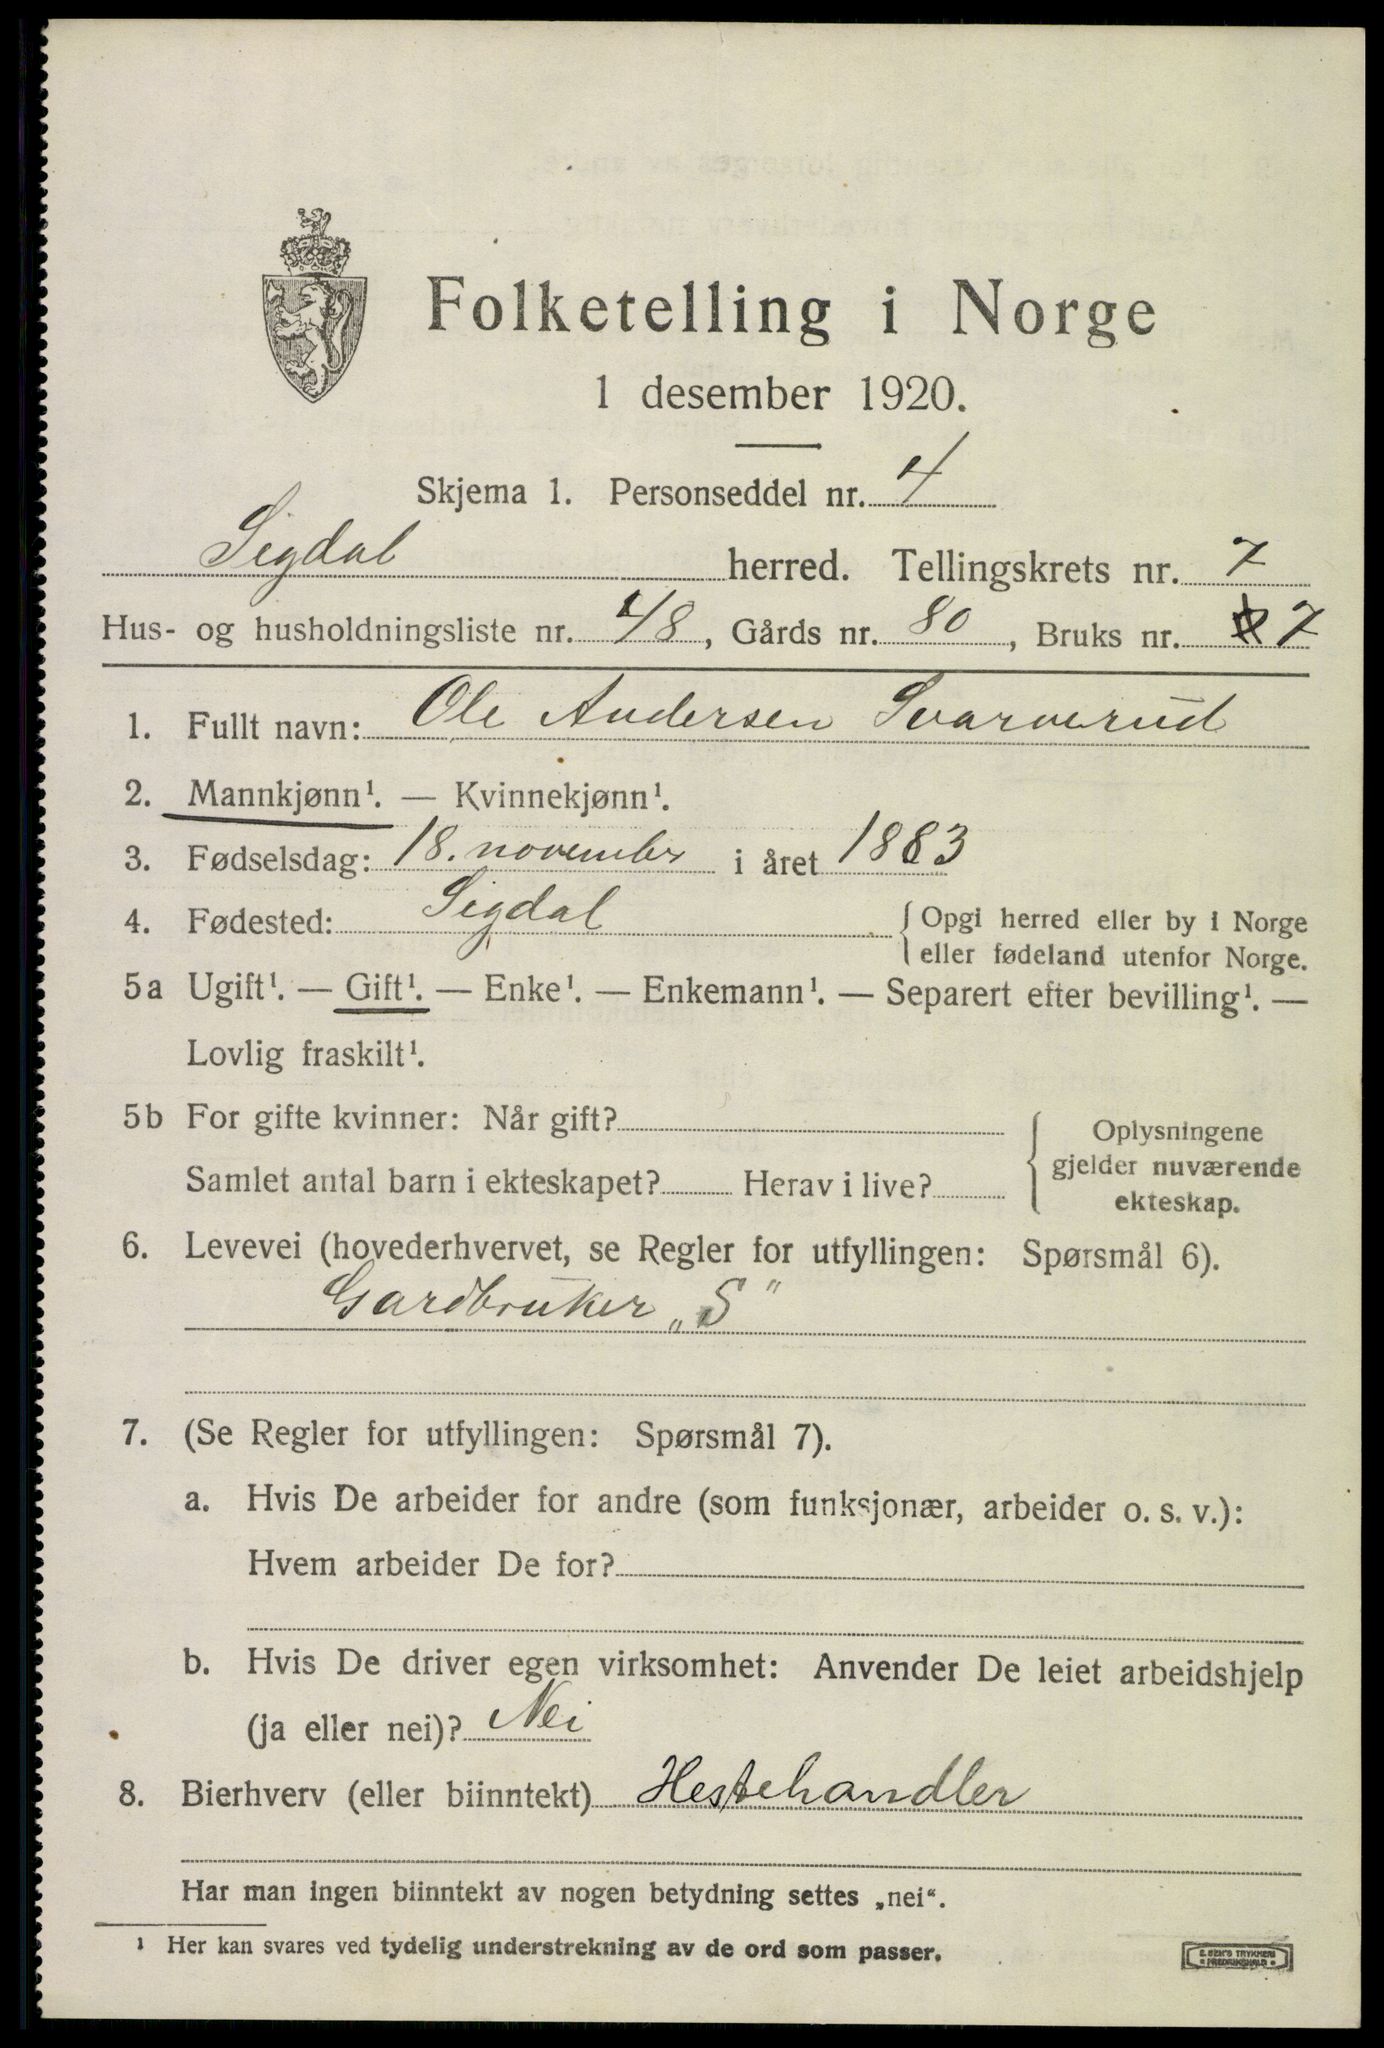 Folketelling i Norge
1 desember 1920.
Skjema 1. Personseddel nr. 4
Sigdal herred. Tellingskrets nr. 7
Hus- og husholdningsliste nr. 48, Gårds nr. 80, Bruks nr. 7
1. Fullt navn: Ole Andersen Svarverud
2. Mannkjønn¹. — Kvinnekjønn¹.
3. Fødselsdag: 18. november i året 1883
4. Fødested: Sigdal { Opgi herred eller by i Norge
eller fødeland utenfor Norge.
5a Ugift¹. — Gift¹. — Enke¹. — Enkemann¹. — Separert efter bevilling¹. —
Lovlig fraskilt¹.
5b For gifte kvinner: Når gift?
Samlet antal barn i ekteskapet? Herav i live?
Oplysningene
gjelder nuværende
ekteskap.
6. Levevei (hovederhvervet, se Regler for utfyllingen: Spørsmål 6).
Gardbruker „S"
7. (Se Regler for utfyllingen: Spørsmål 7).
a. Hvis De arbeider for andre (som funksjonær, arbeider o. s. v.):
Hvem arbeider De for?
b. Hvis De driver egen virksomhet: Anvender De leiet arbeidshjelp
(ja eller nei)? Nei
8. Bierhverv (eller biinntekt) Hestehandler
Har man ingen biinntekt av nogen betydning settes „nei".
¹ Her kan svares ved tydelig understrekning av de ord som passer.
E. SEM'S TRYKKERI
FREDRIKSHALD